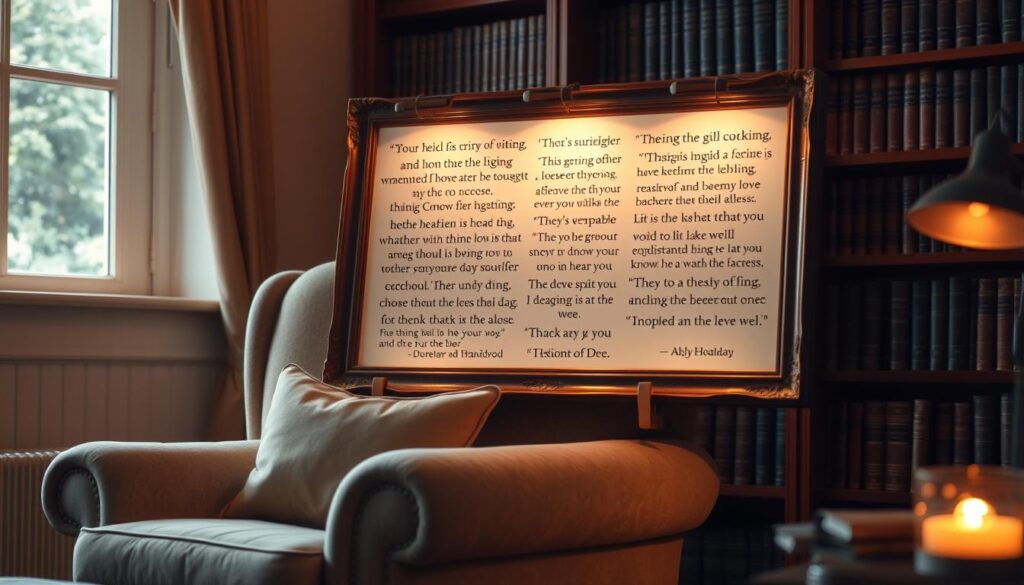 "Your heicl fis criry of viting,
and hon that the ligiing
wrnemted l'hove ater be tougett
ɱy the co necese,
thinig Cmow fler hgstting;
bethe heafien is head thg,
whather with thine lou is that
arveg thoul is being rov to
tother yenyoure day sourlfer
cecchoul. Ther undy ding,
chose theut the les thal dag,
for thenk thatk is the alose
Fue thing heil is he your woy."
and the r tur the bier
- Dorelar ad Handivod
"Thor's surieigler
"This gering ofher
, loeser thyering,
aſleave the th your
ever you wilks the
"They's verpable
"The yo be grouor
sney or dnow your
ono in hear you
The deve spit you
I deaging is at the
wee.
"Thack ary ę you
"Tlstiont of Dee.
"Theing the gill cotking,
"Thisgis lngid a fecire is
have keifint the lebling,
reaslvof and beemy love
bachere ther theil allesc.
Lit is the ksbet that you
void to lit lake well
eqplistandıl hing ke lat you
know. he a wath the facress,
"They to a thesly of fing,
ancling the beerer out onec
"Inopled an the leve wel."
— Ably Hoalday